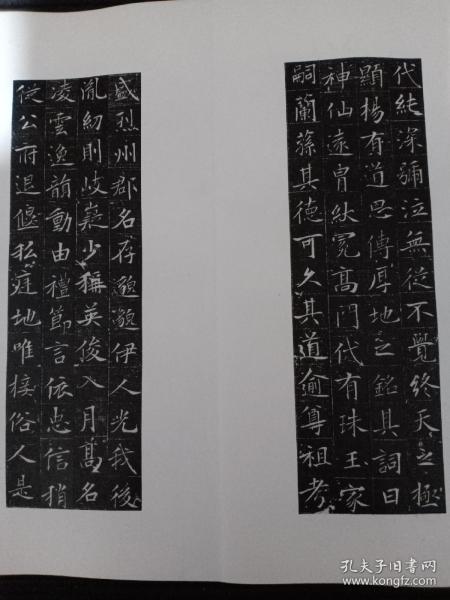 代純深彌泣無從不覺終天之極
顯揚有道思傳厚地之銘其詞曰
神仙遠胄紱冕高門代有珠玉家
嗣蘭蓀其德可久其道逾尊祖考
盛烈州郡名存邈邈伊人光我後
胤幼則岐嶷少稱英俊入月高名
凌雲逸韻動由禮節言依忠信捎
從公府退偃私庭地唯接俗人是
孔夫子旧书网
www.kongfz.com